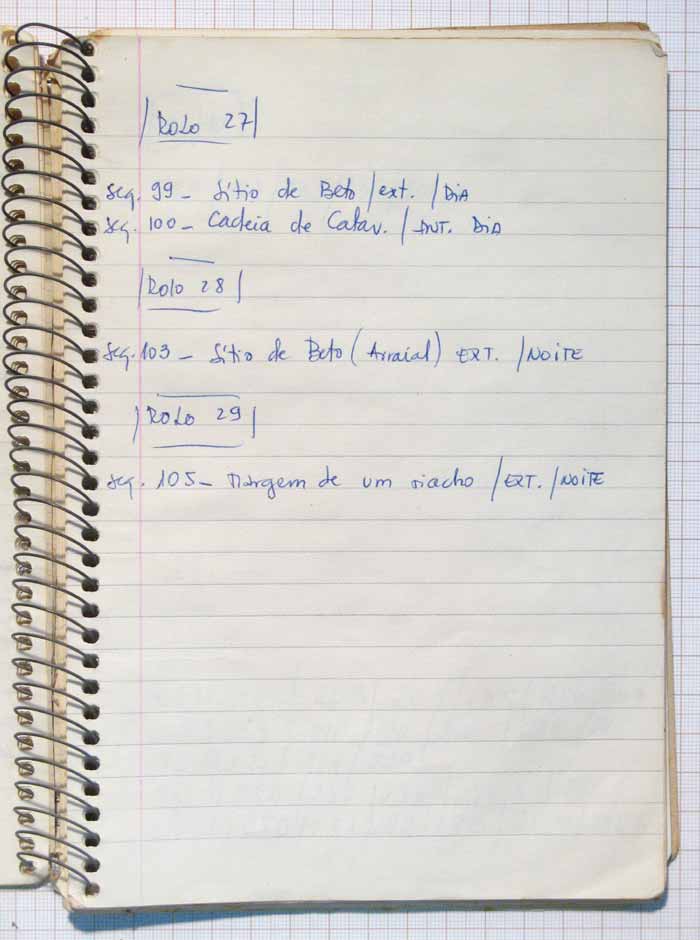 ROLO 27
seq. 99 - Sítio de Beto / ext. / DIA
seq. 100 - Cadeia de Catav. / INT. DIA
ROLO 28
seq. 103 - Sítio de Beto (Arraial) EXT. / NOITE
ROLO 29
seq. 105 - Margem de um riacho / EXT. / NOITE